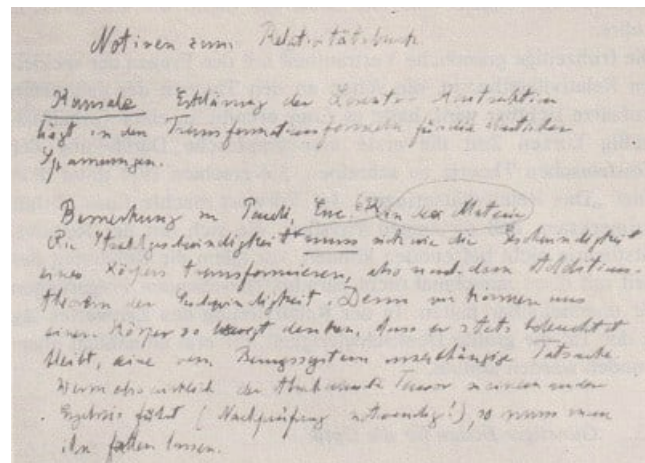 Notizen zum Relativitätsbuch
Kausale Erklärung der Lorentz-Kontraktion
liegt in den Transformationsformeln für die elastischen
Spannungen.
Bemerkung zu Pauli, Enc. in der Materie
Die Strahlgeschwindigkeit muss sich wie die Geschwindigkeit
eines Körpers transformieren, also nach dem Additions-
theorem der Geschwindigkeit. Denn wir können uns
einen Körper so bewegt denken, dass er stets beleuchtet
bleibt, eine vom Bezugssystem unabhängige Tatsache.
Wenn also wirklich der Tensor zu einem andern
Ergebnis führt (Nachprüfung notwendig!), so muss man
ihn fallen lassen.